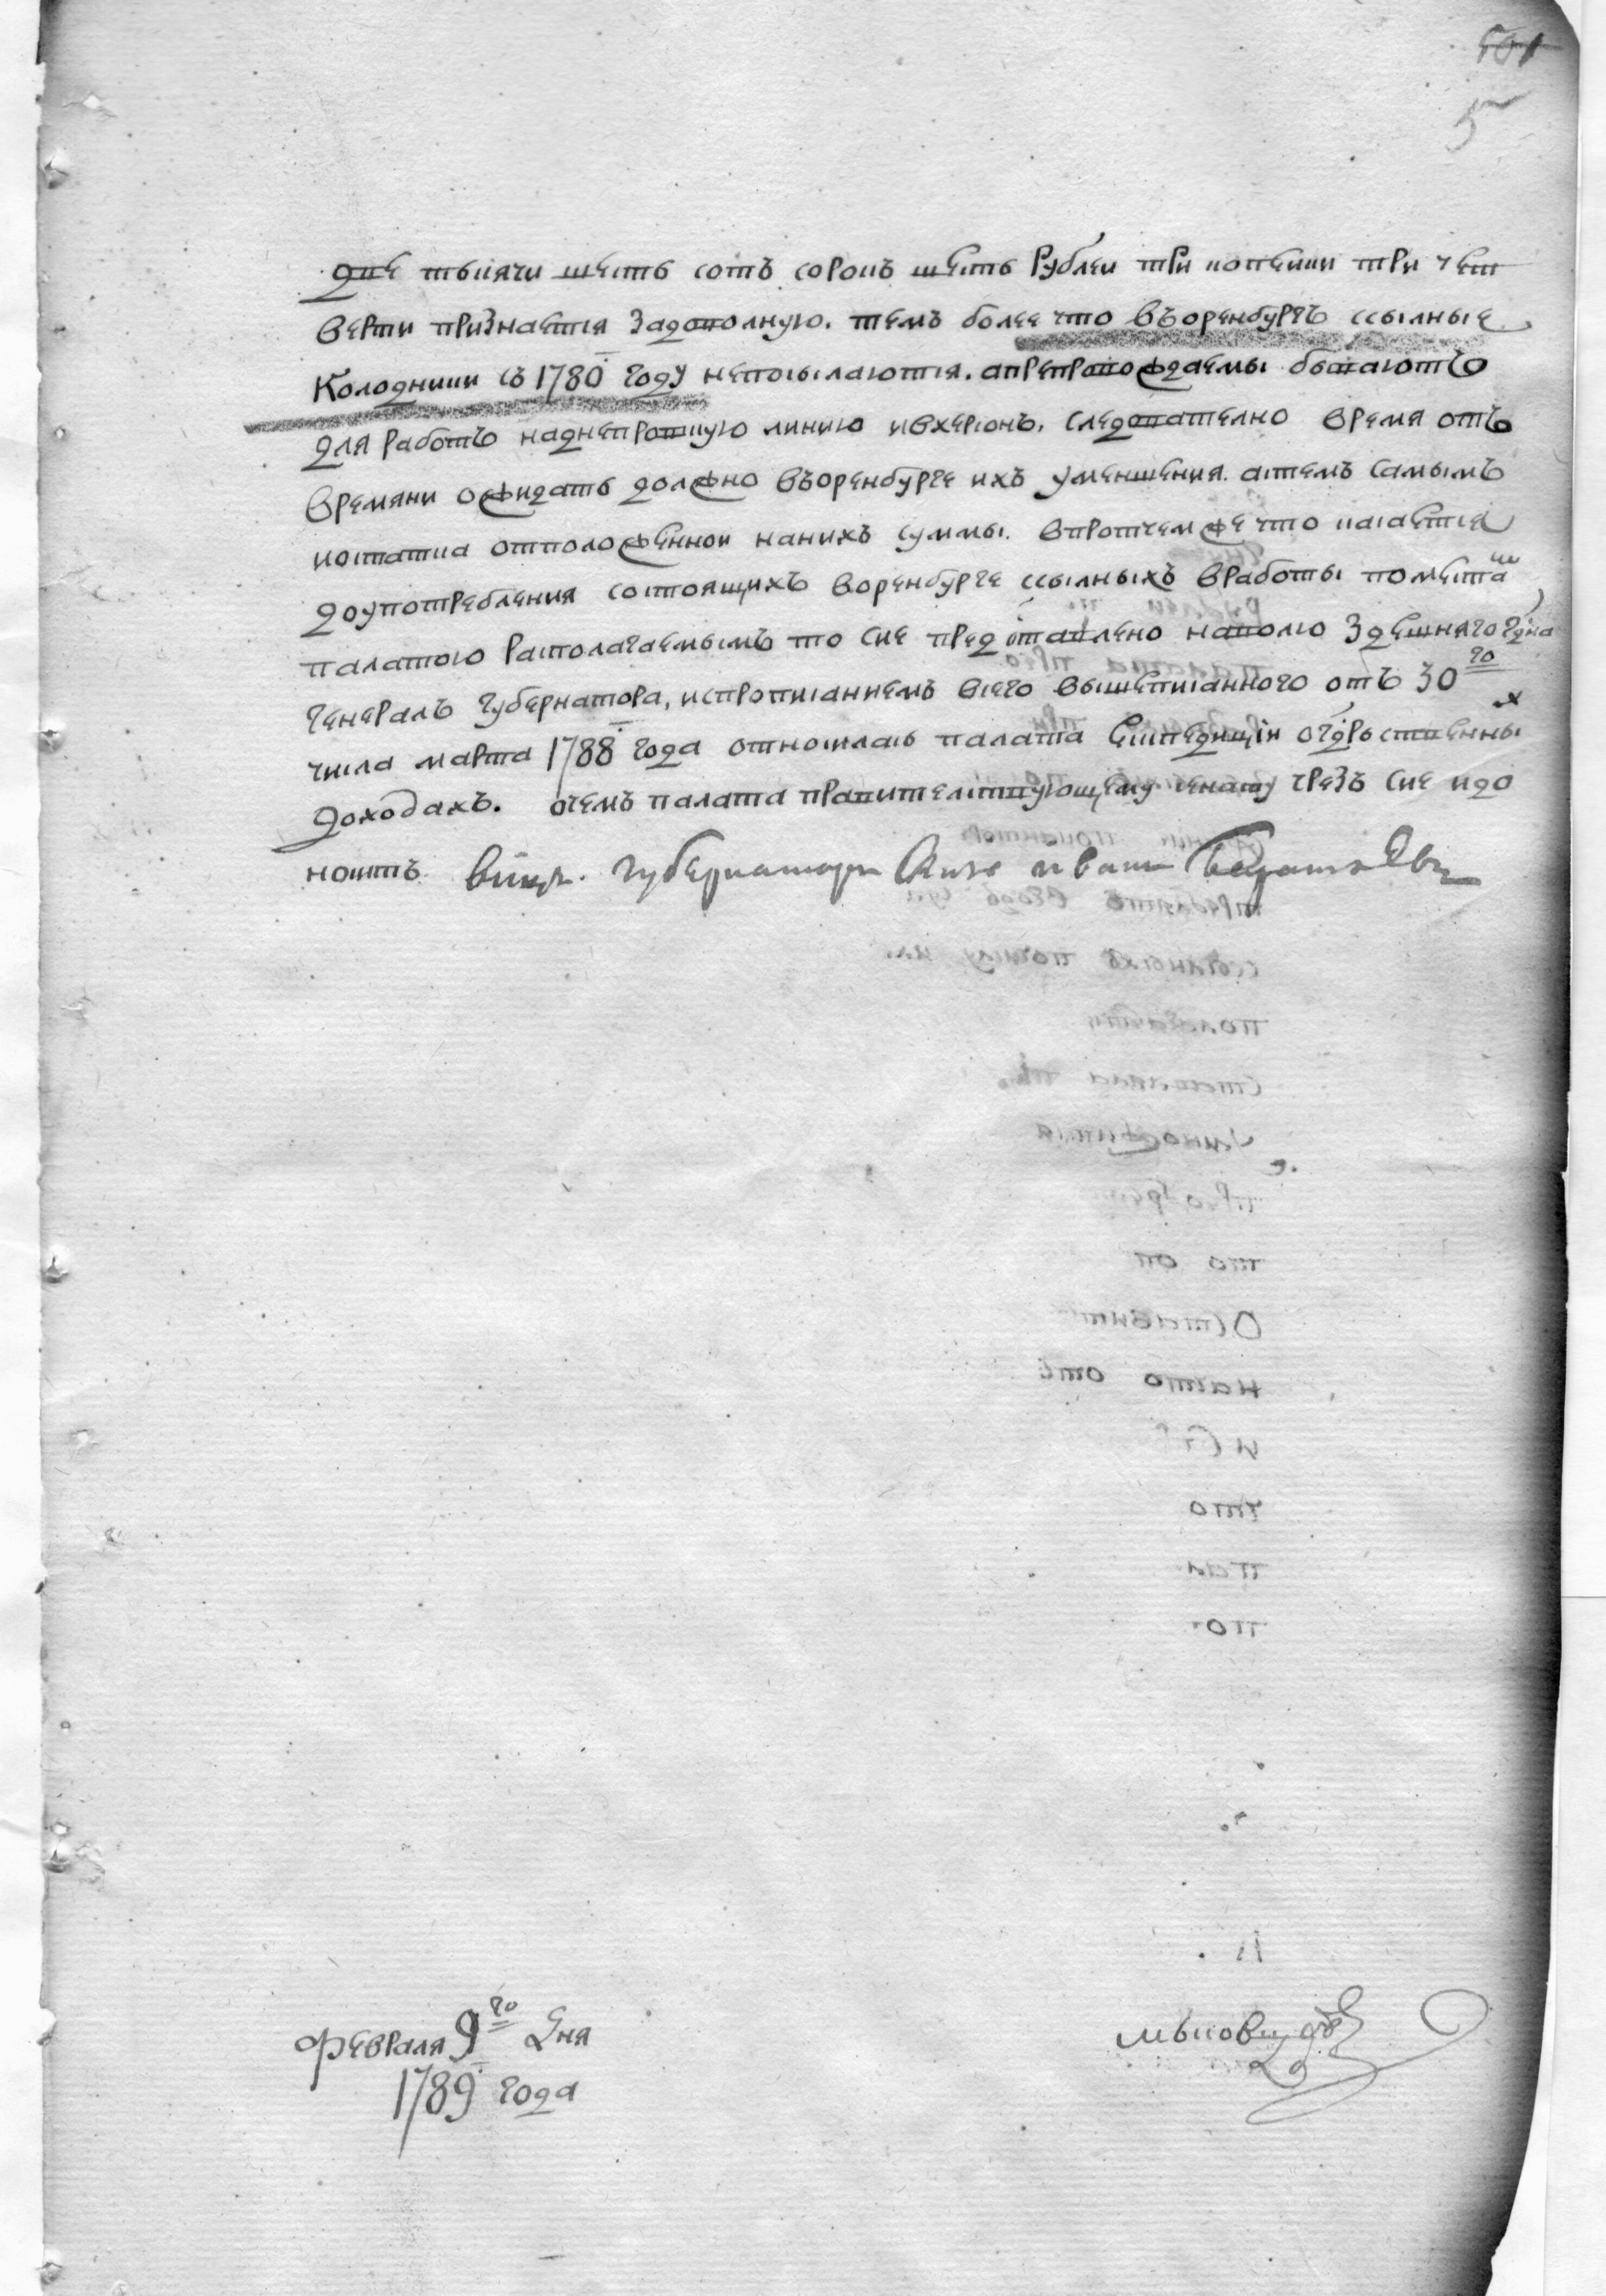 5
две тысячи шесть сотъ сорокъ шесть рублеи три копеики три чет
верти признается задоволную. темъ более что въоренбургъ ссылные
колодники съ 1780 году непосылаются. апрепровождаемы бываютъ
для работъ наднепровскую линию ивхерсонъ. следователно время отъ
времяни ожидать должно въоренбурге ихъ уменшения. атемъ самымъ
иостатка отположеннои нанихъ суммы. впротчемже что касается
доупотребления состоящихъ воренбурге ссылныхъ вработы поместа
палатою располагаемымъ то сие представлено наволю здешняго гдна
генералъ губернатора, испрописаниемъ всего вышеписанного отъ 30го
числа марта 1788 года относилась палата експедиции огдрственны х
доходахъ. очемъ палата правителствующему сенату чрезъ сие идо
носитъ вице. губернаторъ Князь иванъ
февраля 9го дня
1789 года